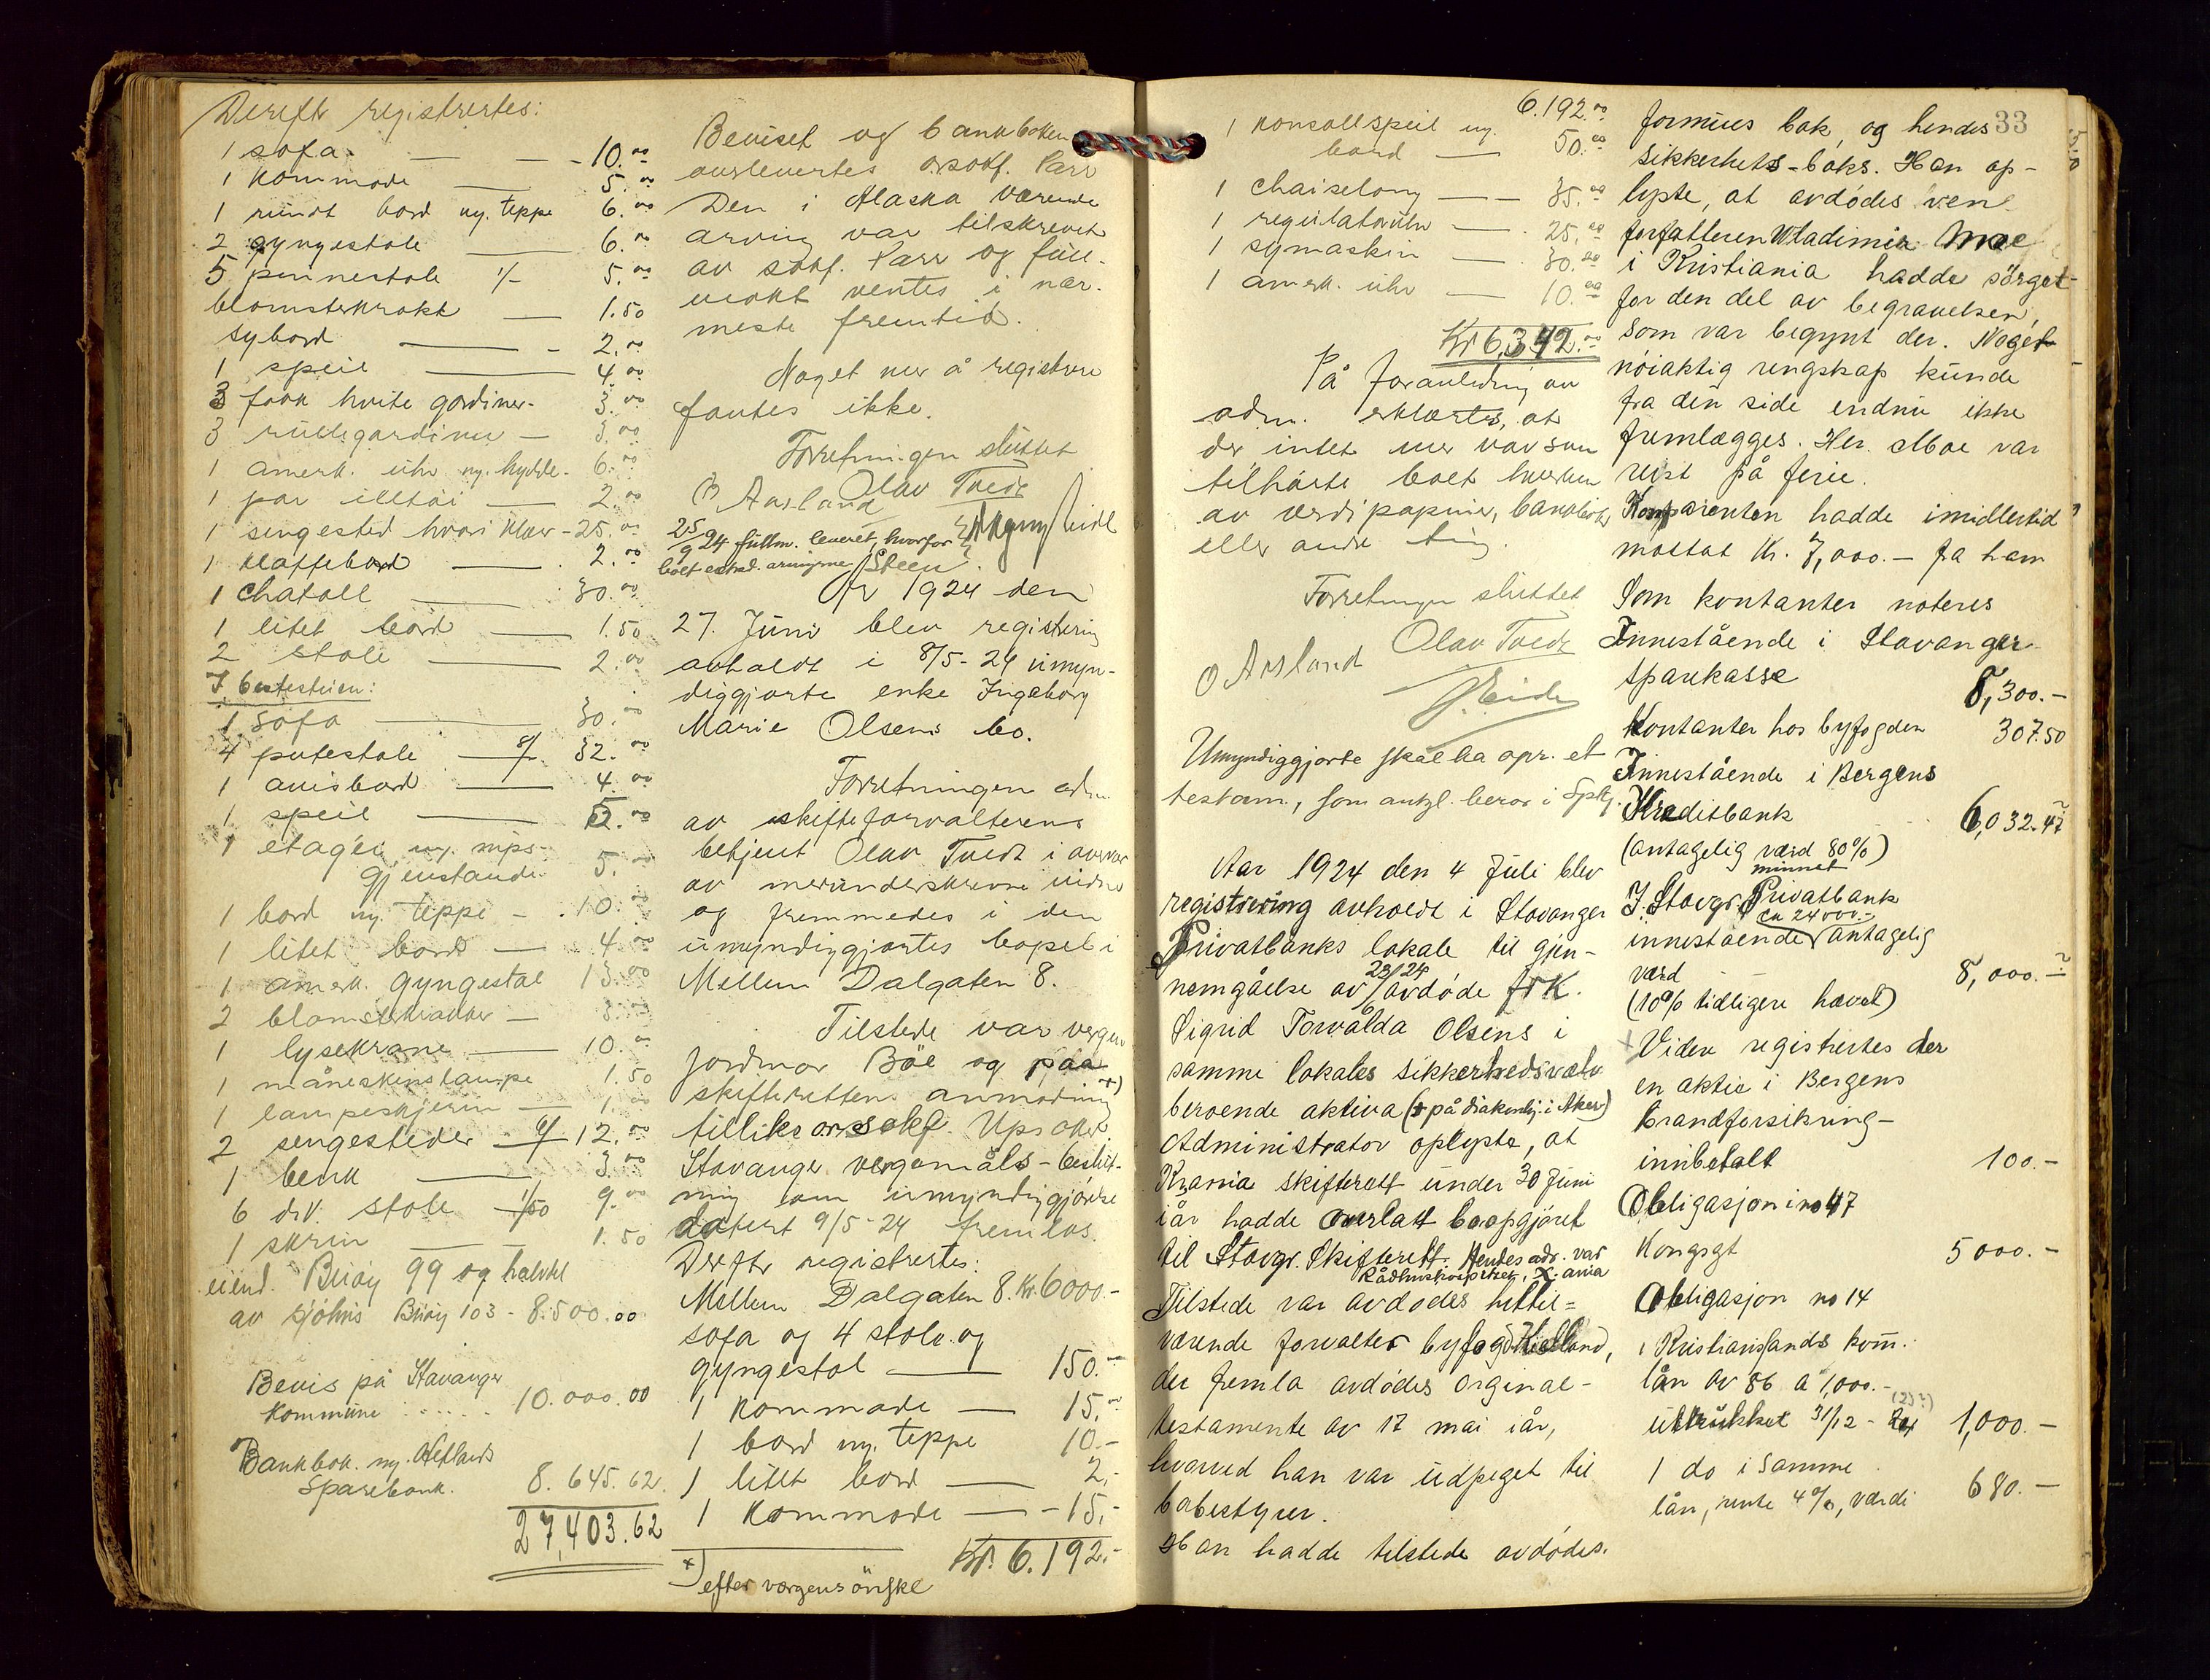 Derefter registrertes:
1 sofa — — 10.00
1 kommode — 5.00
1 rundt bord m. teppe 6.00
2 gyngestole — 6.00
5 pinnestole 1/- 5.00
blomsterkrakk — 1.50
sybord — 2.00
1 speil — 4.00
3 fakk hvite gardiner - 3.00
3 rullegardiner — 3.00
1 amerk. uhr m. hylde - 6.00
1 par illtøi — 2.00
1 sengested hvori klær - 25.00
1 klaffebord — 2.00
1 chatoll — 30.00
1 litet bord — 1.50
2 stole — 2.00
I bestestuen:
1 sofa — 30.00
4 putestole — 8/- 32.00
1 avisbord — 4.00
1 speil — 12.00
1 etagér m. nips-
gjenstande 5.00
1 bord m. teppe - 10.00
1 litet bord — 4.00
1 amerk. gyngestol 13.00
2 blomsterkrakker — 8.00
1 lysekrone — 10.00
1 måneskinslampe 1.50
1 lampeskjerm — 1.00
2 sengesteder — 6/- 12.00
1 benk — 3.00
6 div. stole 1/50 9.00
1 skrin — 1.50
eiend. Buøy 99 og halvdel
av sjøhus Buøy 103 - 8.500.00
Bevis på Stavanger
kommune ..... 10.000.00
Bankbok m. Hetlands
Sparebank. 8.645.62
27,403.62
Beviset og bankboken
avslevertes o.r.sakf. Parr
Den i Alaska værende
arving var tilskrevet
av sakf. Parr og full-
makt ventes i nær-
meste fremtid.
Noget mer å registrere
fantes ikke.
Forretningen sluttet
Olav Tvedt
O Aarsland
25/9 24 fullm. levert, hvorfor
boet extrad. arvingerne
År 1924 den
27. Juni blev registrering
avholdt i 8/5-24 umyn-
diggjorte enke Ingeborg
Marie Olsens bo.
Forretningen adm.
av skifteforvalterens
betjent Olav Tvedt i overvær
av medunderskrevne vidne
og fremmedes i den
umyndiggjortes bopel i
Mellem Dalgaten 8.
Tilstede var vergen
jordmor Bøe og paa
skifterettens anmodning x)
tillike o.r.sakf. Upsaker
Stavanger vergemåls-beslut-
ning om umyndiggjørelse
datert 9/5-24 fremlas.
Derefter registrertes:
Mellem Dalgaten 8. Kr. 6000.-
sofa og 4 stoler og
gyngestol — 150.-
1 kommode — 15.00
1 bord m. teppe 10.-
1 litet bord — 2.-
1 kommode — 15.-
Kr. 6.192.-
x) efter vergens ønske
6.192.00
1 konsollspeil m.
bord — 50.00
1 chaiselong — 35.00
1 regulatoruhr — 25.00
1 symaskin — 30.00
1 amerk. uhr — 10.00
Kr 6,342.00
På foranledning av
adm. erklærtes, at
der intet mer var som
tilhørte boet hverken
av verdipapirer, bankbøker
eller andre ting.
Forretningen sluttet
Olav Tvedt
O Aarsland
J. Eide
Umyndiggjorte skal ha opr. et
testam., som antgl. beror i Spbk.
Aar 1924 den 4 Juli blev
registrering avholdt i Stavanger
Privatbanks lokale til gjen-
nemgåelse av 23/6 24 avdøde frk.
Sigrid Torvalda Olsens i
samme lokales sikkerhedsvælv
beroende aktiva (på diakonhj. i Aker)
Administrator oplyste, at
Krania skifterett under 30 Juni
iår hadde overlatt boopgjøret
til Stavgr. Skifterett. Hendes adr. var
Rådhushospitset, X.ania
Tilstede var avdødes hittil=
værende forvalter byfogd Kielland,
der fremla avdødes orginal-
testamente av 17 mai iår,
hvorved han var utpeget til
bobestyrer.
Han hadde tilstede avdødes
33
formues bok, og hendes
sikkerhets-boks. Han op-
lyste, at avdødes ven
forfatteren Wladimir Moe
i Kristiania hadde sørget
for den del av begravelsen,
som var begynt der. Noget
nøiaktig rengskap kunde
fra den side endnu ikke
fremlægges. Her. Moe var
reist på ferie.
Komparenten hadde imidlertid
mottat Kr. 7,000.- fra ham
Som kontanter noteres
Innestående i Stavanger
Sparekasse 8,300.-
Kontanter hos byfogden 307.50
Innestående i Bergens
Kreditbank 6,032.47
(antagelig værd 80%)
minnet
I Stavgr. Privatbank
ca 24000.-
innestående antagelig
værd 8,000.-
(10% tidligere hævet)
x Videre registrertes der
en aktie i Bergens
brandforsikring-
innbetalt 100.-
Obligasjon i no 47
Kongsgt 5000.-
Obligasjon no 14
i Kristiansands kom.
lån av 86 a 1,000.-
uttrukket 31/12 - 24 (23?) 1,000.-
1 do i samme
lån, rente 4%, værdi 680.-